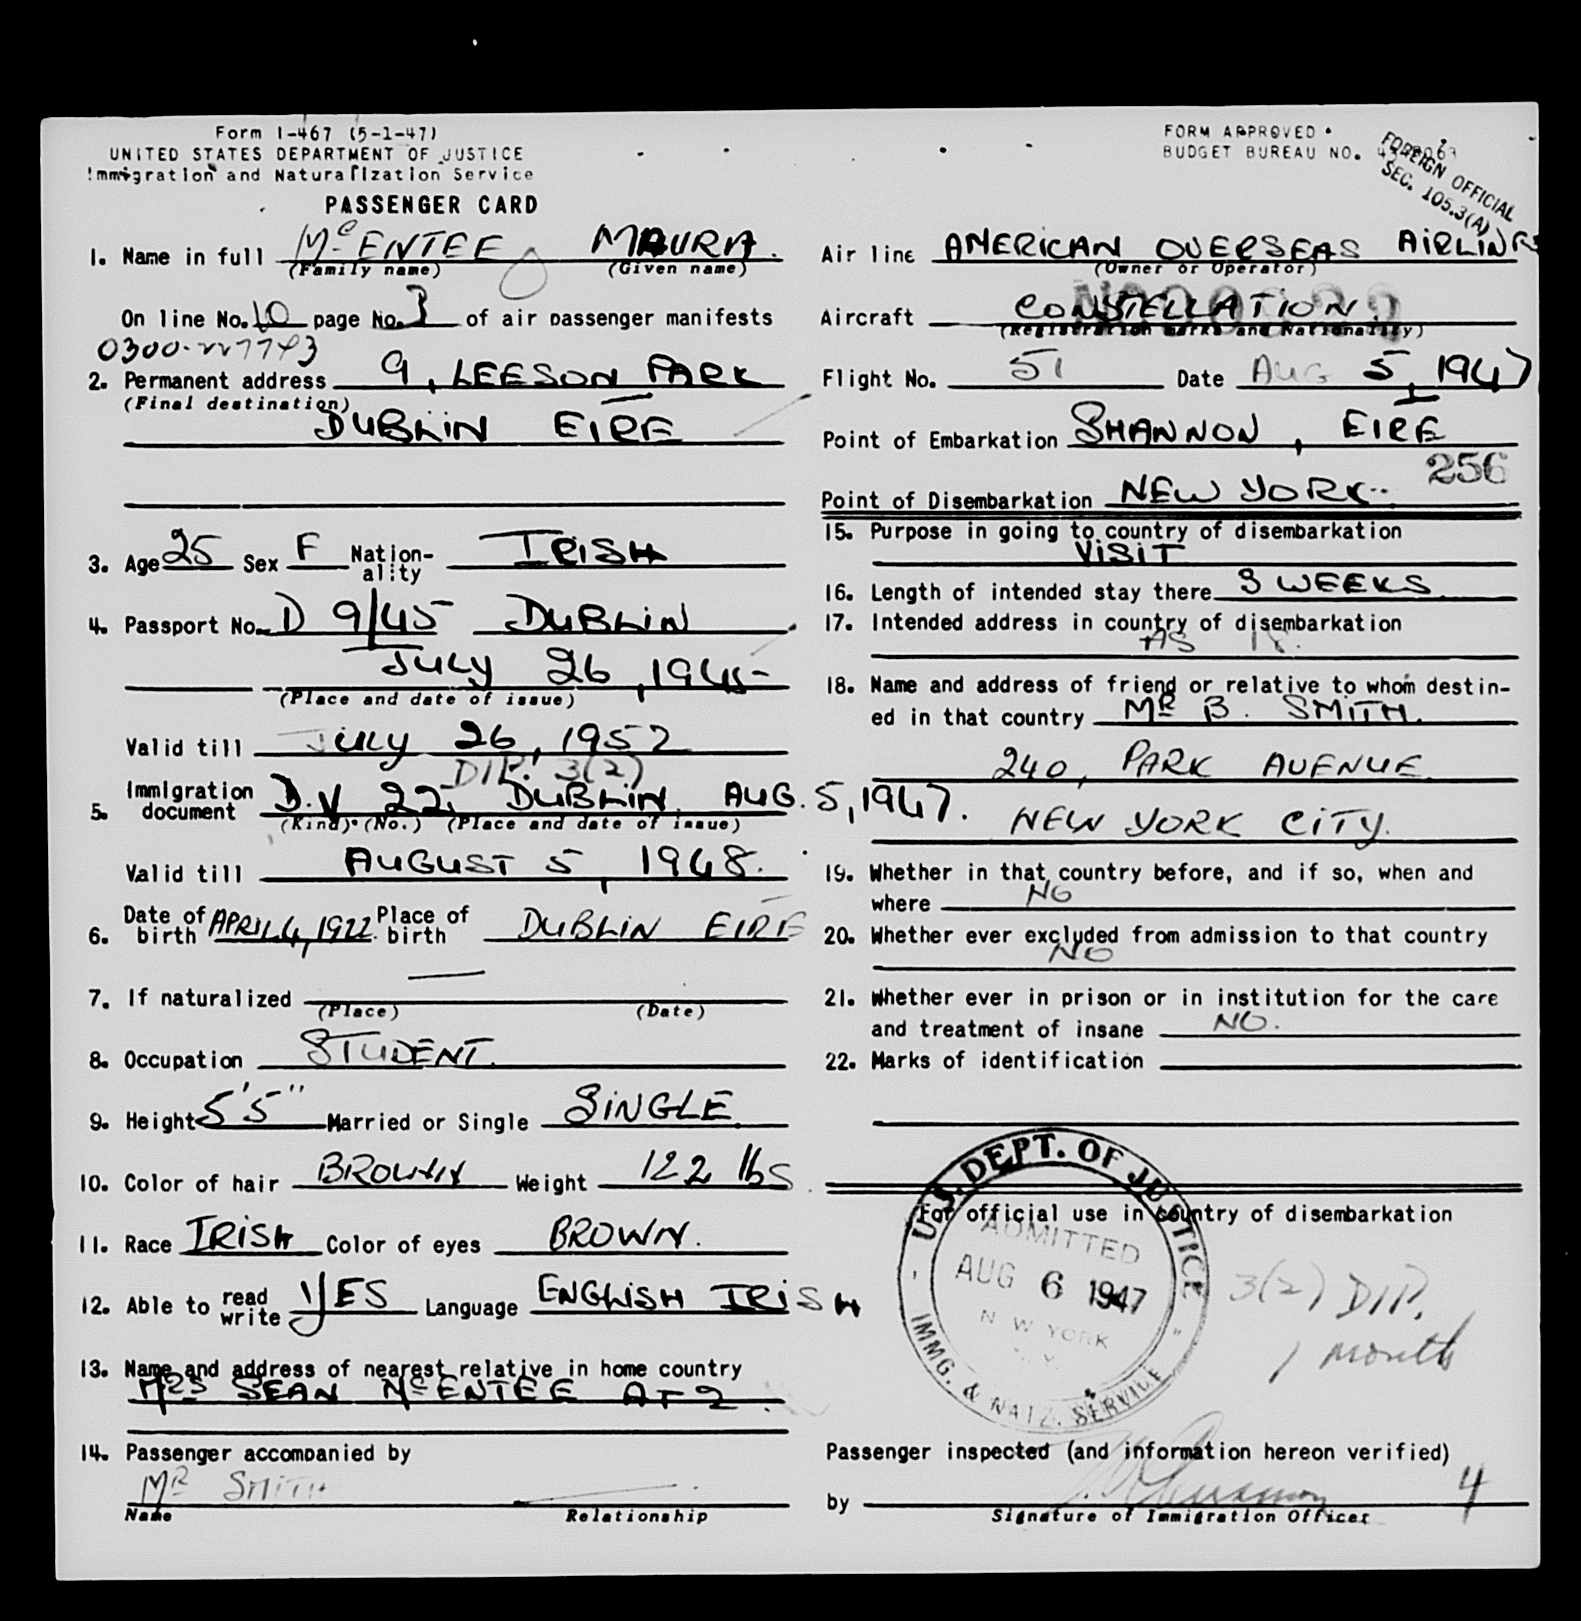 Form I-467 (5-1-47)
UNITED STATES DEPARTMENT OF JUSTICE
Immigration and Naturalization Service
PASSENGER CARD
FORM APPROVED
BUDGET BUREAU NO.
FOREIGN OFFICIAL
SEC. 105.3(A)
1. Name in full McENTEE MAURA.
(Family name) (Given name)
On line No. 10 page No. 3 of air passenger manifests
0300-227743
2. Permanent address 9, LEESON PARK
(Final destination)
DUBLIN EIRE
3. Age 25 Sex F Nation-ality IRISH
4. Passport No. D 9/45 DUBLIN
JULY 26, 1945
(Place and date of issue)
Valid till JULY 26, 1952
DIP. 3(2)
5. Immigration document D.V 22, DUBLIN. AUG. 5, 1947.
(Kind) (No.) (Place and date of issue)
Valid till AUGUST 5, 1948.
6. Date of birth APRIL 4, 1922. Place of birth DUBLIN EIRE
7. If naturalized —
(Place) (Date)
8. Occupation STUDENT.
9. Height 5'5" Married or Single SINGLE.
10. Color of hair BROWN Weight 122 lbs
11. Race IRISH Color of eyes BROWN.
12. Able to read write YES Language ENGLISH IRISH
13. Name and address of nearest relative in home country
MRS SEAN McENTEE AT 2.
14. Passenger accompanied by
MR SMITH —
Name Relationship
Air line AMERICAN OVERSEAS AIRLINES
(Owner or Operator)
Aircraft CONSTELLATION
(Registration marks and Nationality)
Flight No. 51 Date AUG 5, 1947
Point of Embarkation SHANNON, EIRE
256
Point of Disembarkation NEW YORK.
15. Purpose in going to country of disembarkation
VISIT
16. Length of intended stay there 3 WEEKS
17. Intended address in country of disembarkation
AS 18.
18. Name and address of friend or relative to whom destin-
ed in that country MR B. SMITH.
240, PARK AVENUE.
NEW YORK CITY.
19. Whether in that country before, and if so, when and
where NO
20. Whether ever excluded from admission to that country
NO
21. Whether ever in prison or in institution for the care
and treatment of insane NO.
22. Marks of identification
For official use in country of disembarkation
U.S. DEPT. OF JUSTICE
ADMITTED
AUG 6 1947
N W YORK
N.Y.
IMMG. & NATZ. SERVICE
3(2) DIP.
1 month
Passenger inspected (and information hereon verified)
by 4
Signature of Immigration Officer